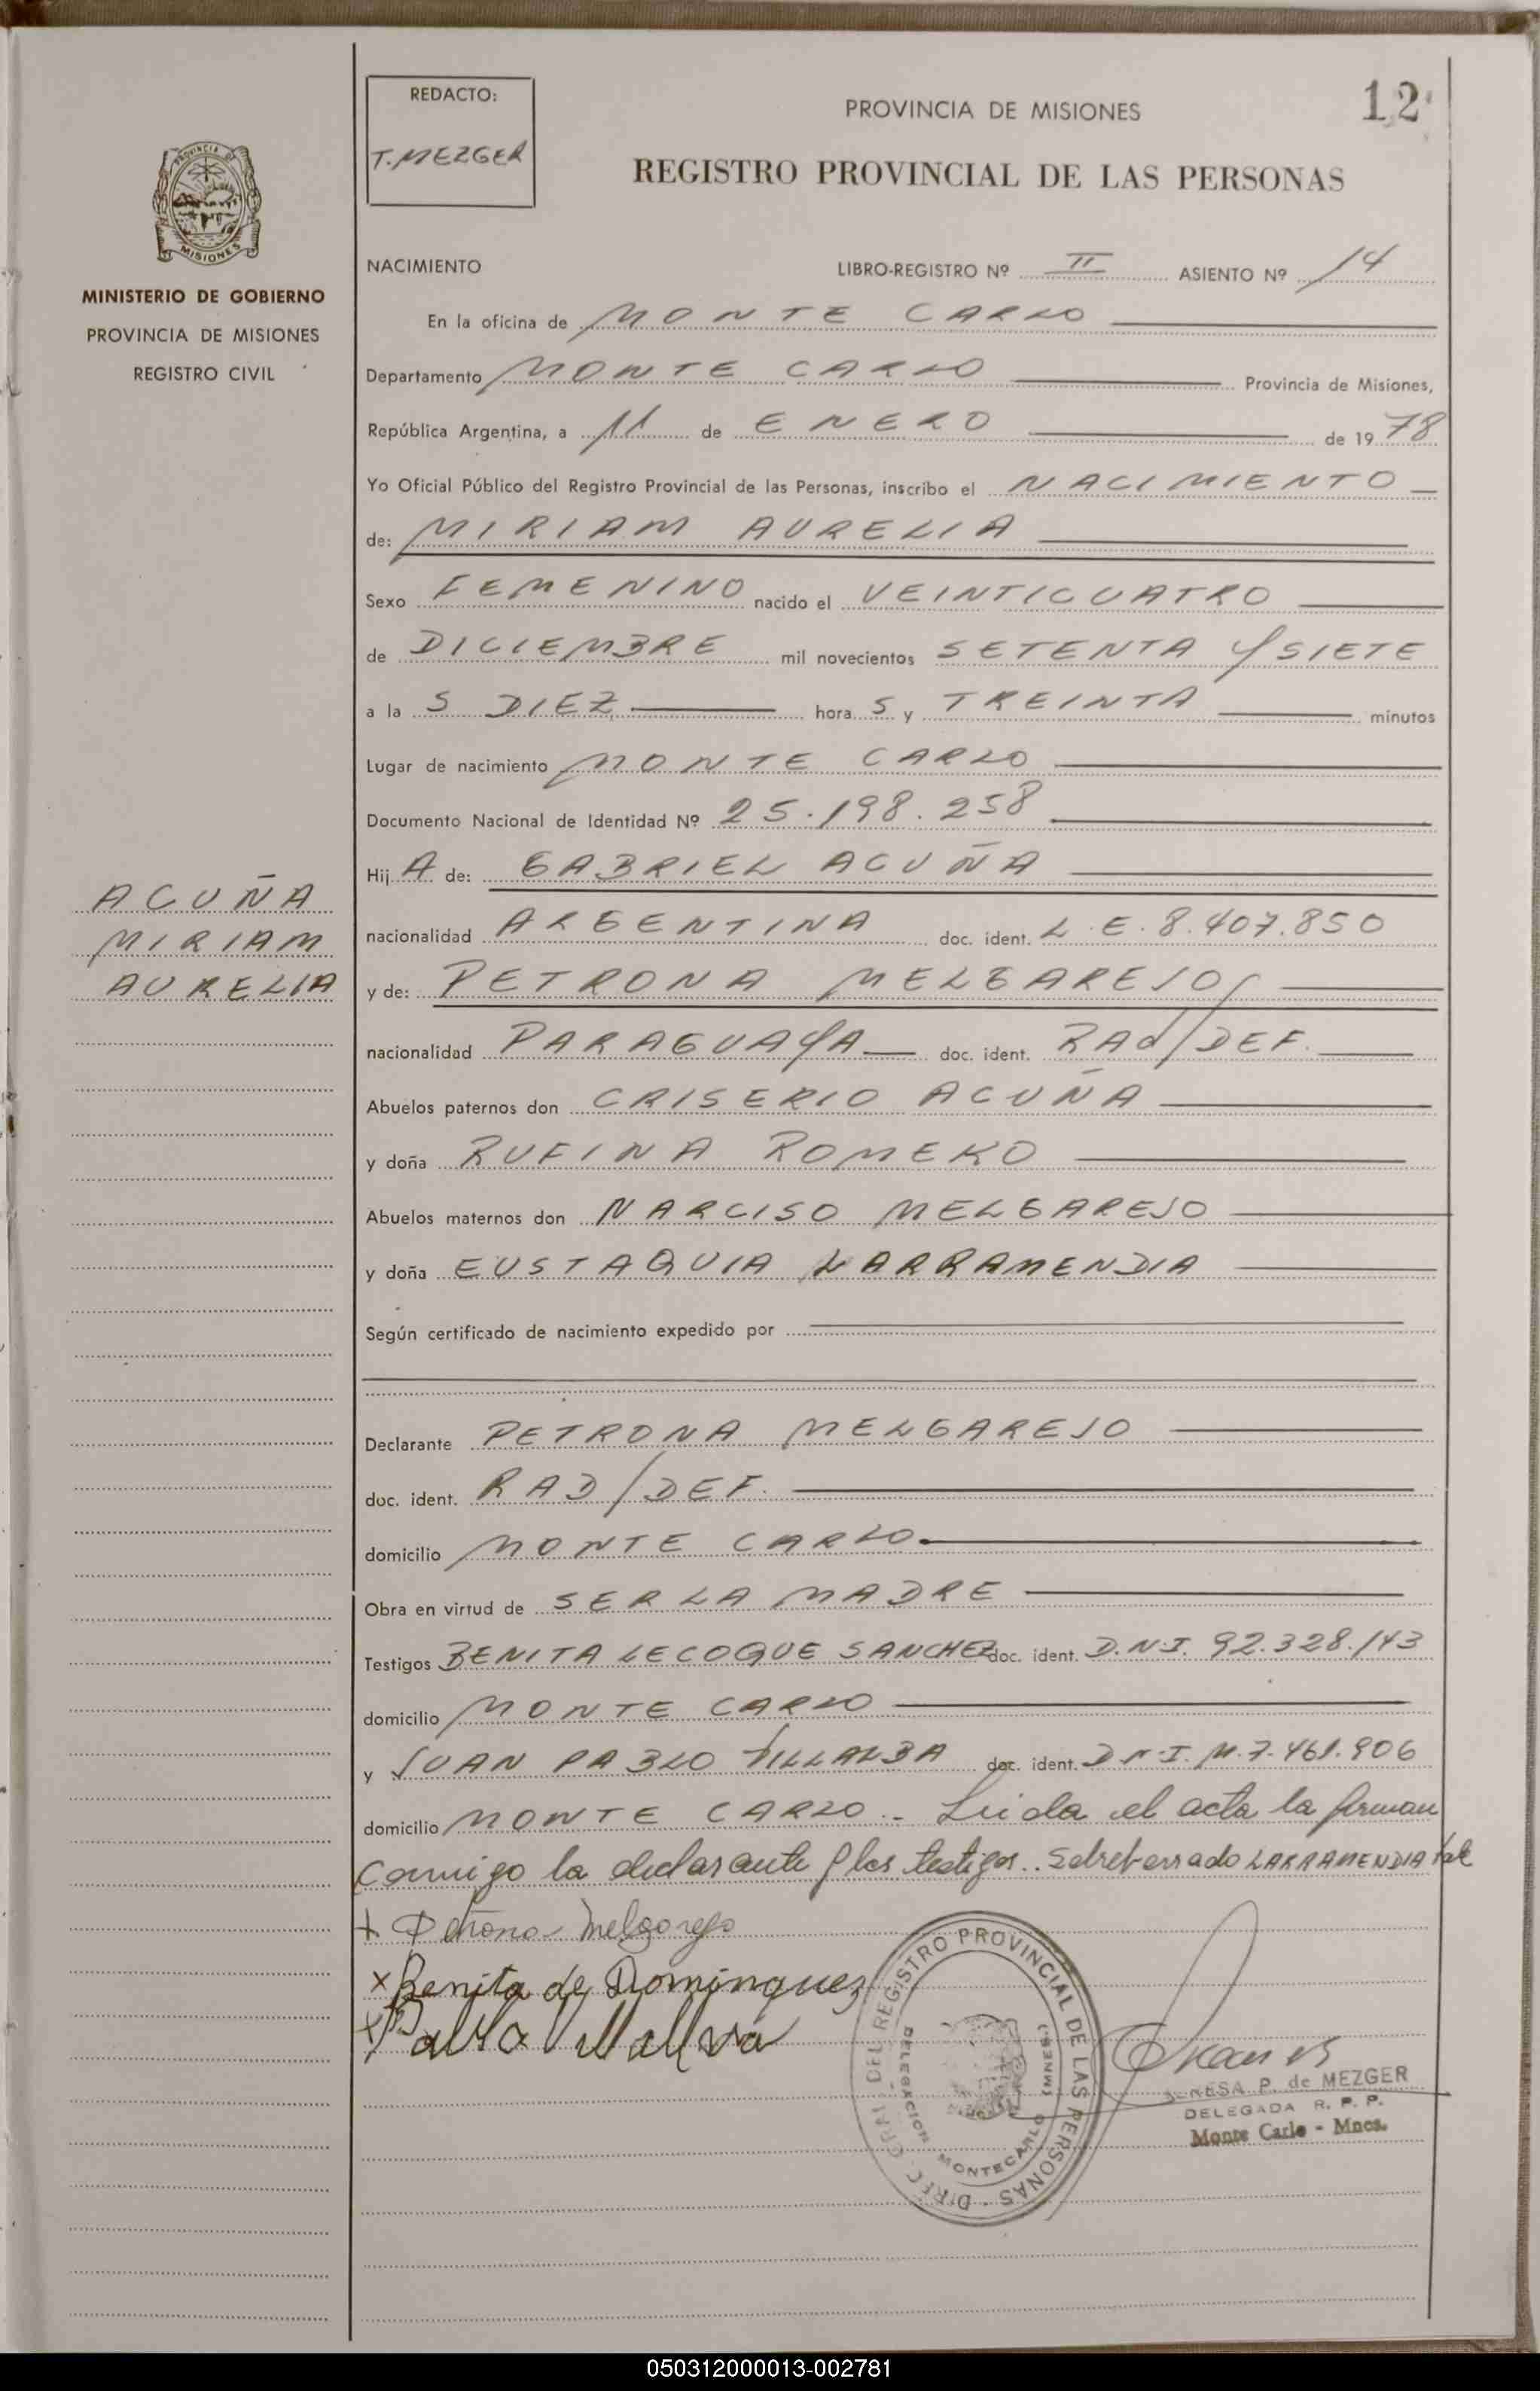 REDACTO:
T. MEZGER
PROVINCIA DE MISIONES
12
REGISTRO PROVINCIAL DE LAS PERSONAS
PROVINCIA DE
MISIONES
MINISTERIO DE GOBIERNO
PROVINCIA DE MISIONES
REGISTRO CIVIL
NACIMIENTO LIBRO-REGISTRO Nº II ASIENTO Nº 14
En la oficina de MONTE CARLO
Departamento MONTE CARLO Provincia de Misiones,
República Argentina, a 11 de ENERO de 19 78
Yo Oficial Público del Registro Provincial de las Personas, inscribo el NACIMIENTO
de: MIRIAM AURELIA
Sexo FEMENINO nacido el VEINTICUATRO
de DICIEMBRE mil novecientos SETENTA Y SIETE
a la S DIEZ hora S y TREINTA minutos
Lugar de nacimiento MONTE CARLO
Documento Nacional de Identidad Nº 25.198.258
Hij A de: GABRIEL ACUÑA
ACUÑA
MIRIAM
AURELIA
nacionalidad ARGENTINA doc. ident. L.E. 8.407.850
y de: PETRONA MELGAREJO
nacionalidad PARAGUAYA doc. ident. RAD/DEF.
Abuelos paternos don CRISERIO ACUÑA
y doña RUFINA ROMERO
Abuelos maternos don NARCISO MELGAREJO
y doña EUSTAQUIA LARRAMENDIA
Según certificado de nacimiento expedido por
Declarante PETRONA MELGAREJO
doc. ident. RAD/DEF.
domicilio MONTE CARLO
Obra en virtud de SER LA MADRE
Testigos BENITA LECOQUE SANCHEZ doc. ident. D.N.I. 92.328.143
domicilio MONTE CARLO
y JUAN PABLO VILLALBA doc. ident. D.N.I. M.7.461.906
domicilio MONTE CARLO.- Leida el acta la firman
conmigo la declarante y los testigos.. Sobreborrado LARRAMENDIA vale
+ Petrona Melgarejo
x Benita de Dominguez
DIREC. GRAL. DEL REGISTRO PROVINCIAL DE LAS PERSONAS
DELEGACION MONTECARLO (MNES.)
P. de MEZGER
DELEGADA R. P. P.
Monte Carlo - Mnes.
050312000013-002781